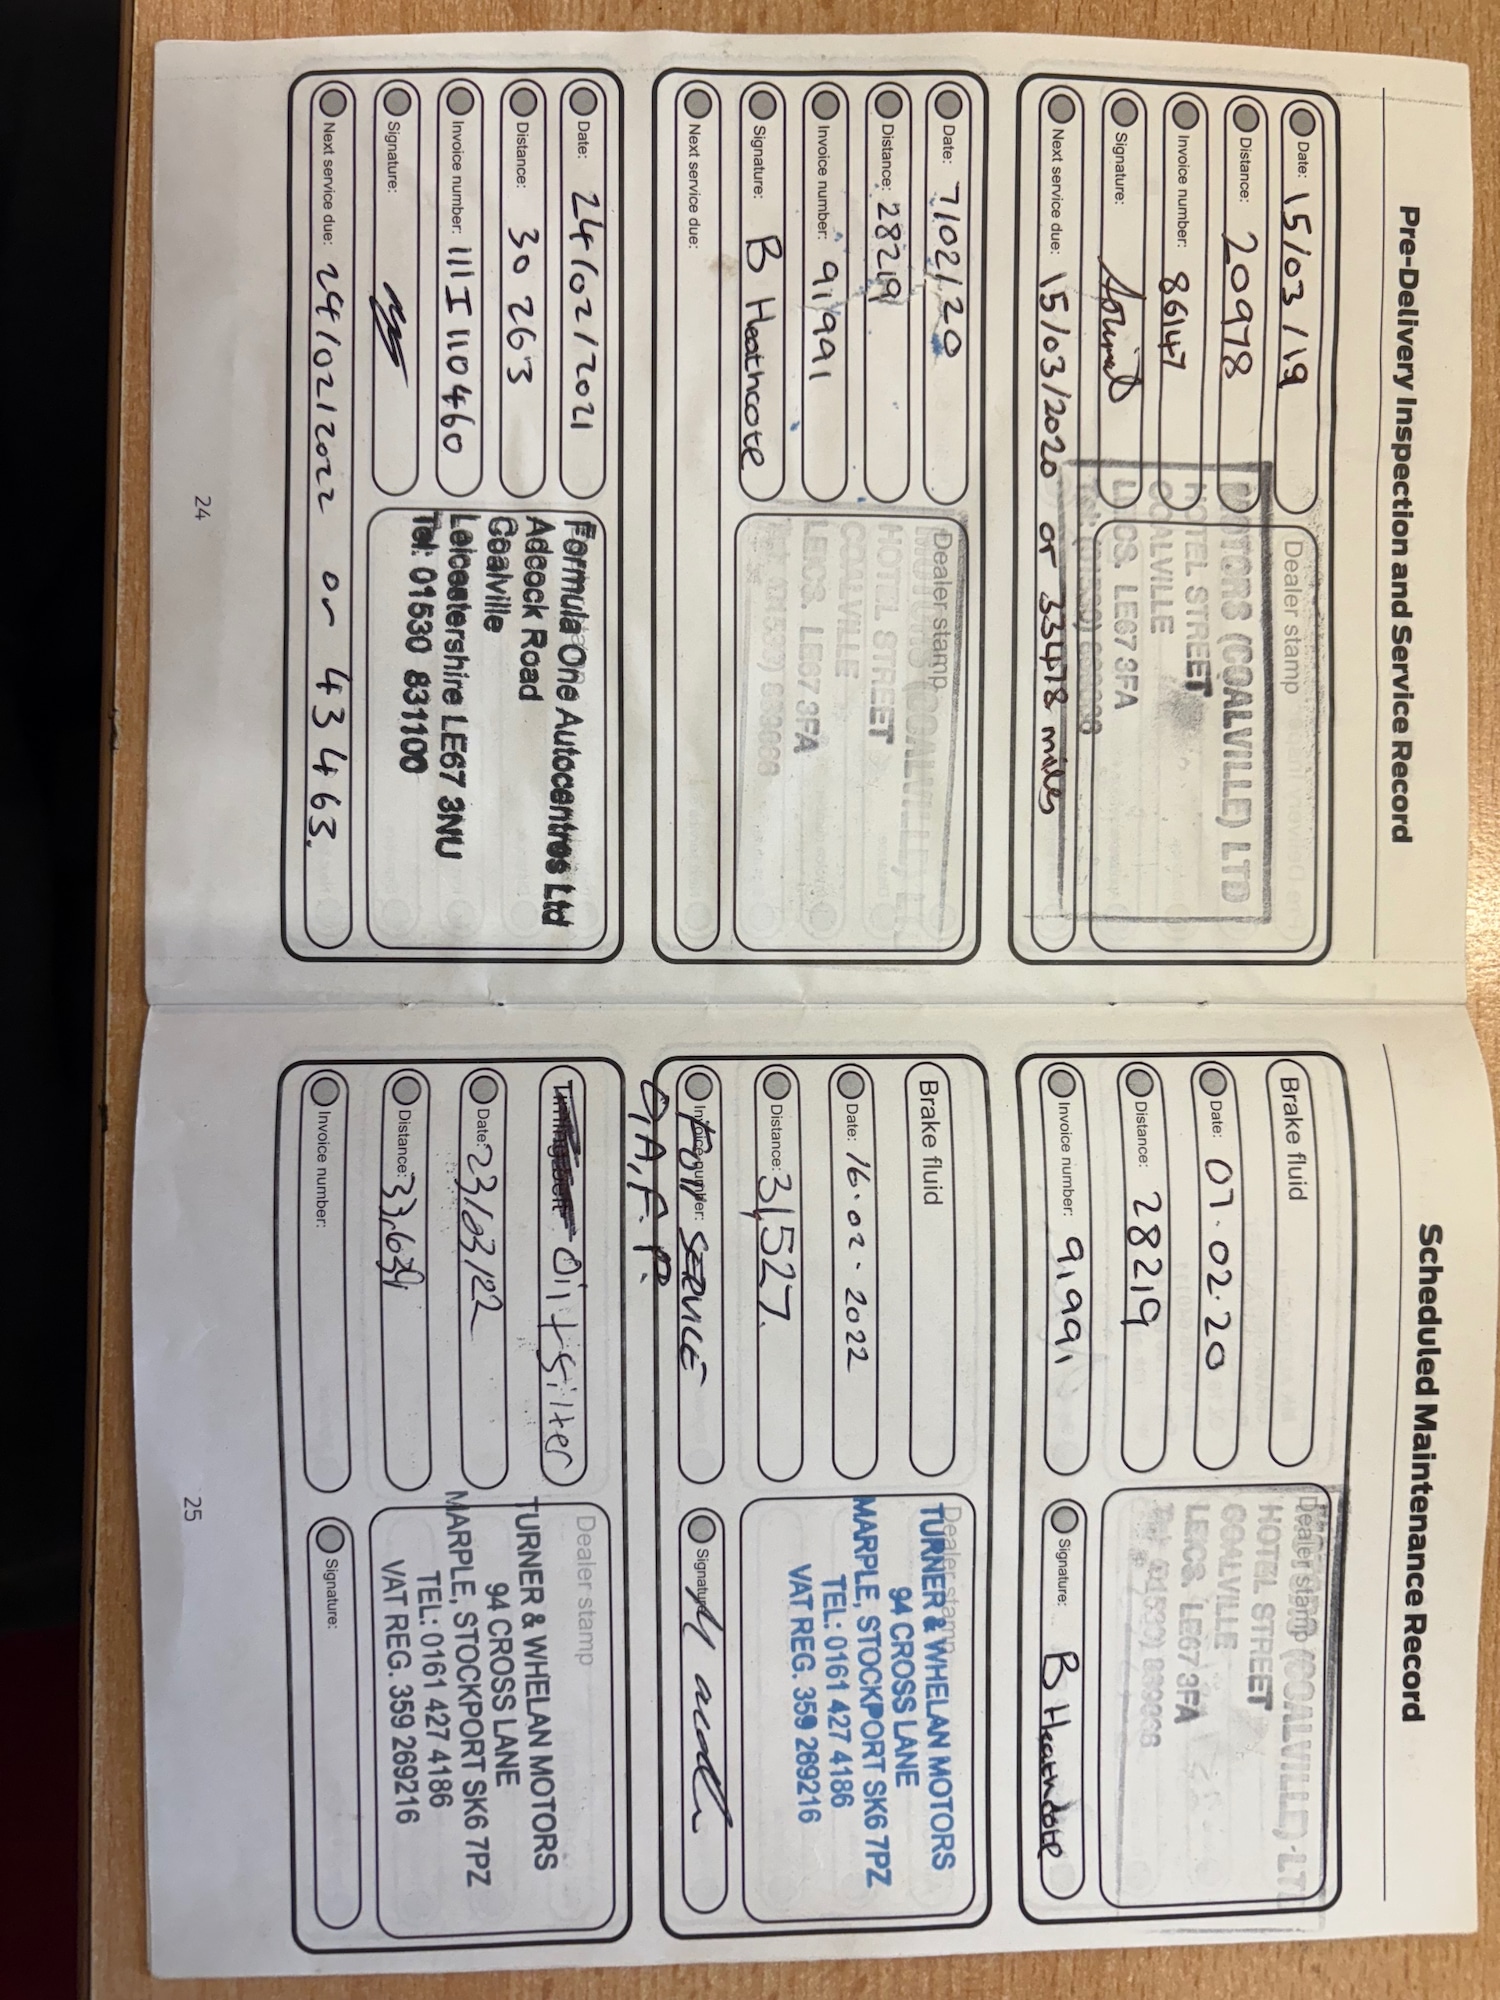 Pre-Delivery Inspection and Service Record
Date: 15/03/19
Distance: 20978
Invoice number: 86147
Signature:
Next service due: 15/03/2020 or 33478 miles
Dealer stamp
MOTORS (COALVILLE) LTD
HOTEL STREET
COALVILLE
LEICS. LE67 3FA
Date: 7/02/20
Distance: 28219
Invoice number: 91991
Signature: B Heathcote
Next service due:
Dealer stamp
MOTORS (COALVILLE) L
HOTEL STREET
COALVILLE
LEICS. LE67 3FA
Date: 24/02/2021
Distance: 30 263
Invoice number: 111 I 110460
Signature:
Next service due: 24/02/2022 or 43463.
Formula One Autocentres Ltd
Adcock Road
Coalville
Leicestershire LE67 3NU
Tel: 01530 831100
24
Scheduled Maintenance Record
Brake fluid
Date: 07.02.20
Distance: 28219
Invoice number: 91991
Dealer stamp
(COALVILLE) LT
HOTEL STREET
COALVILLE
LEICS. LE67 3FA
Signature: B Heathcote
Brake fluid
Date: 16.02.2022
Distance: 31,527.
Invoice number: Full SERVICE
Dealer stamp
TURNER & WHELAN MOTORS
94 CROSS LANE
MARPLE, STOCKPORT SK6 7PZ
TEL: 0161 427 4186
VAT REG. 359 269216
Signature:
Oil + Filter
Date: 23/03/22
Distance: 33,639
Invoice number:
Dealer stamp
TURNER & WHELAN MOTORS
94 CROSS LANE
MARPLE, STOCKPORT SK6 7PZ
TEL: 0161 427 4186
VAT REG. 359 269216
Signature:
25